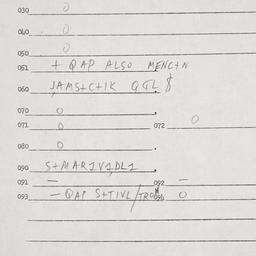 030 0
040 0
050 0
051 + QAP ALSO MENC+N
060 JAMS+C+IK QGL 8
070 0
071 0 072 0
080 0
090 S+MAR1V1DL1
091 — 092 —
093 — QAP S+TIVL/TROM 094 0